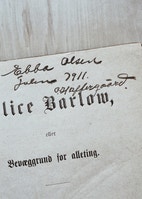 Ebba Olsen
Julen 1911.
Staffergaard.
lice Barlow,
eller
Bevæggrund for alleting.